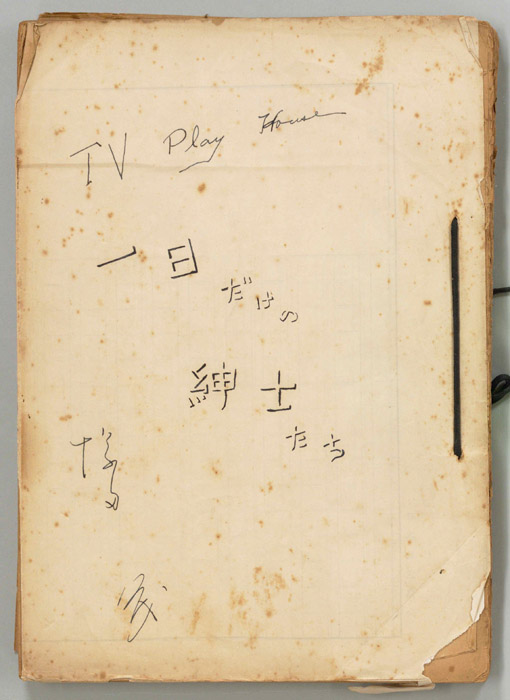 TV Play House
一日だけの
紳士たち